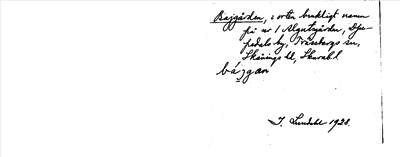 Bajgården, i orten brukligt namn
på nr 1 Algutsgården, Dju-
pedals by, Trässbergs sn,
Skånings hd, Skarab. l.
bájgan
J. Lundahl 1928.